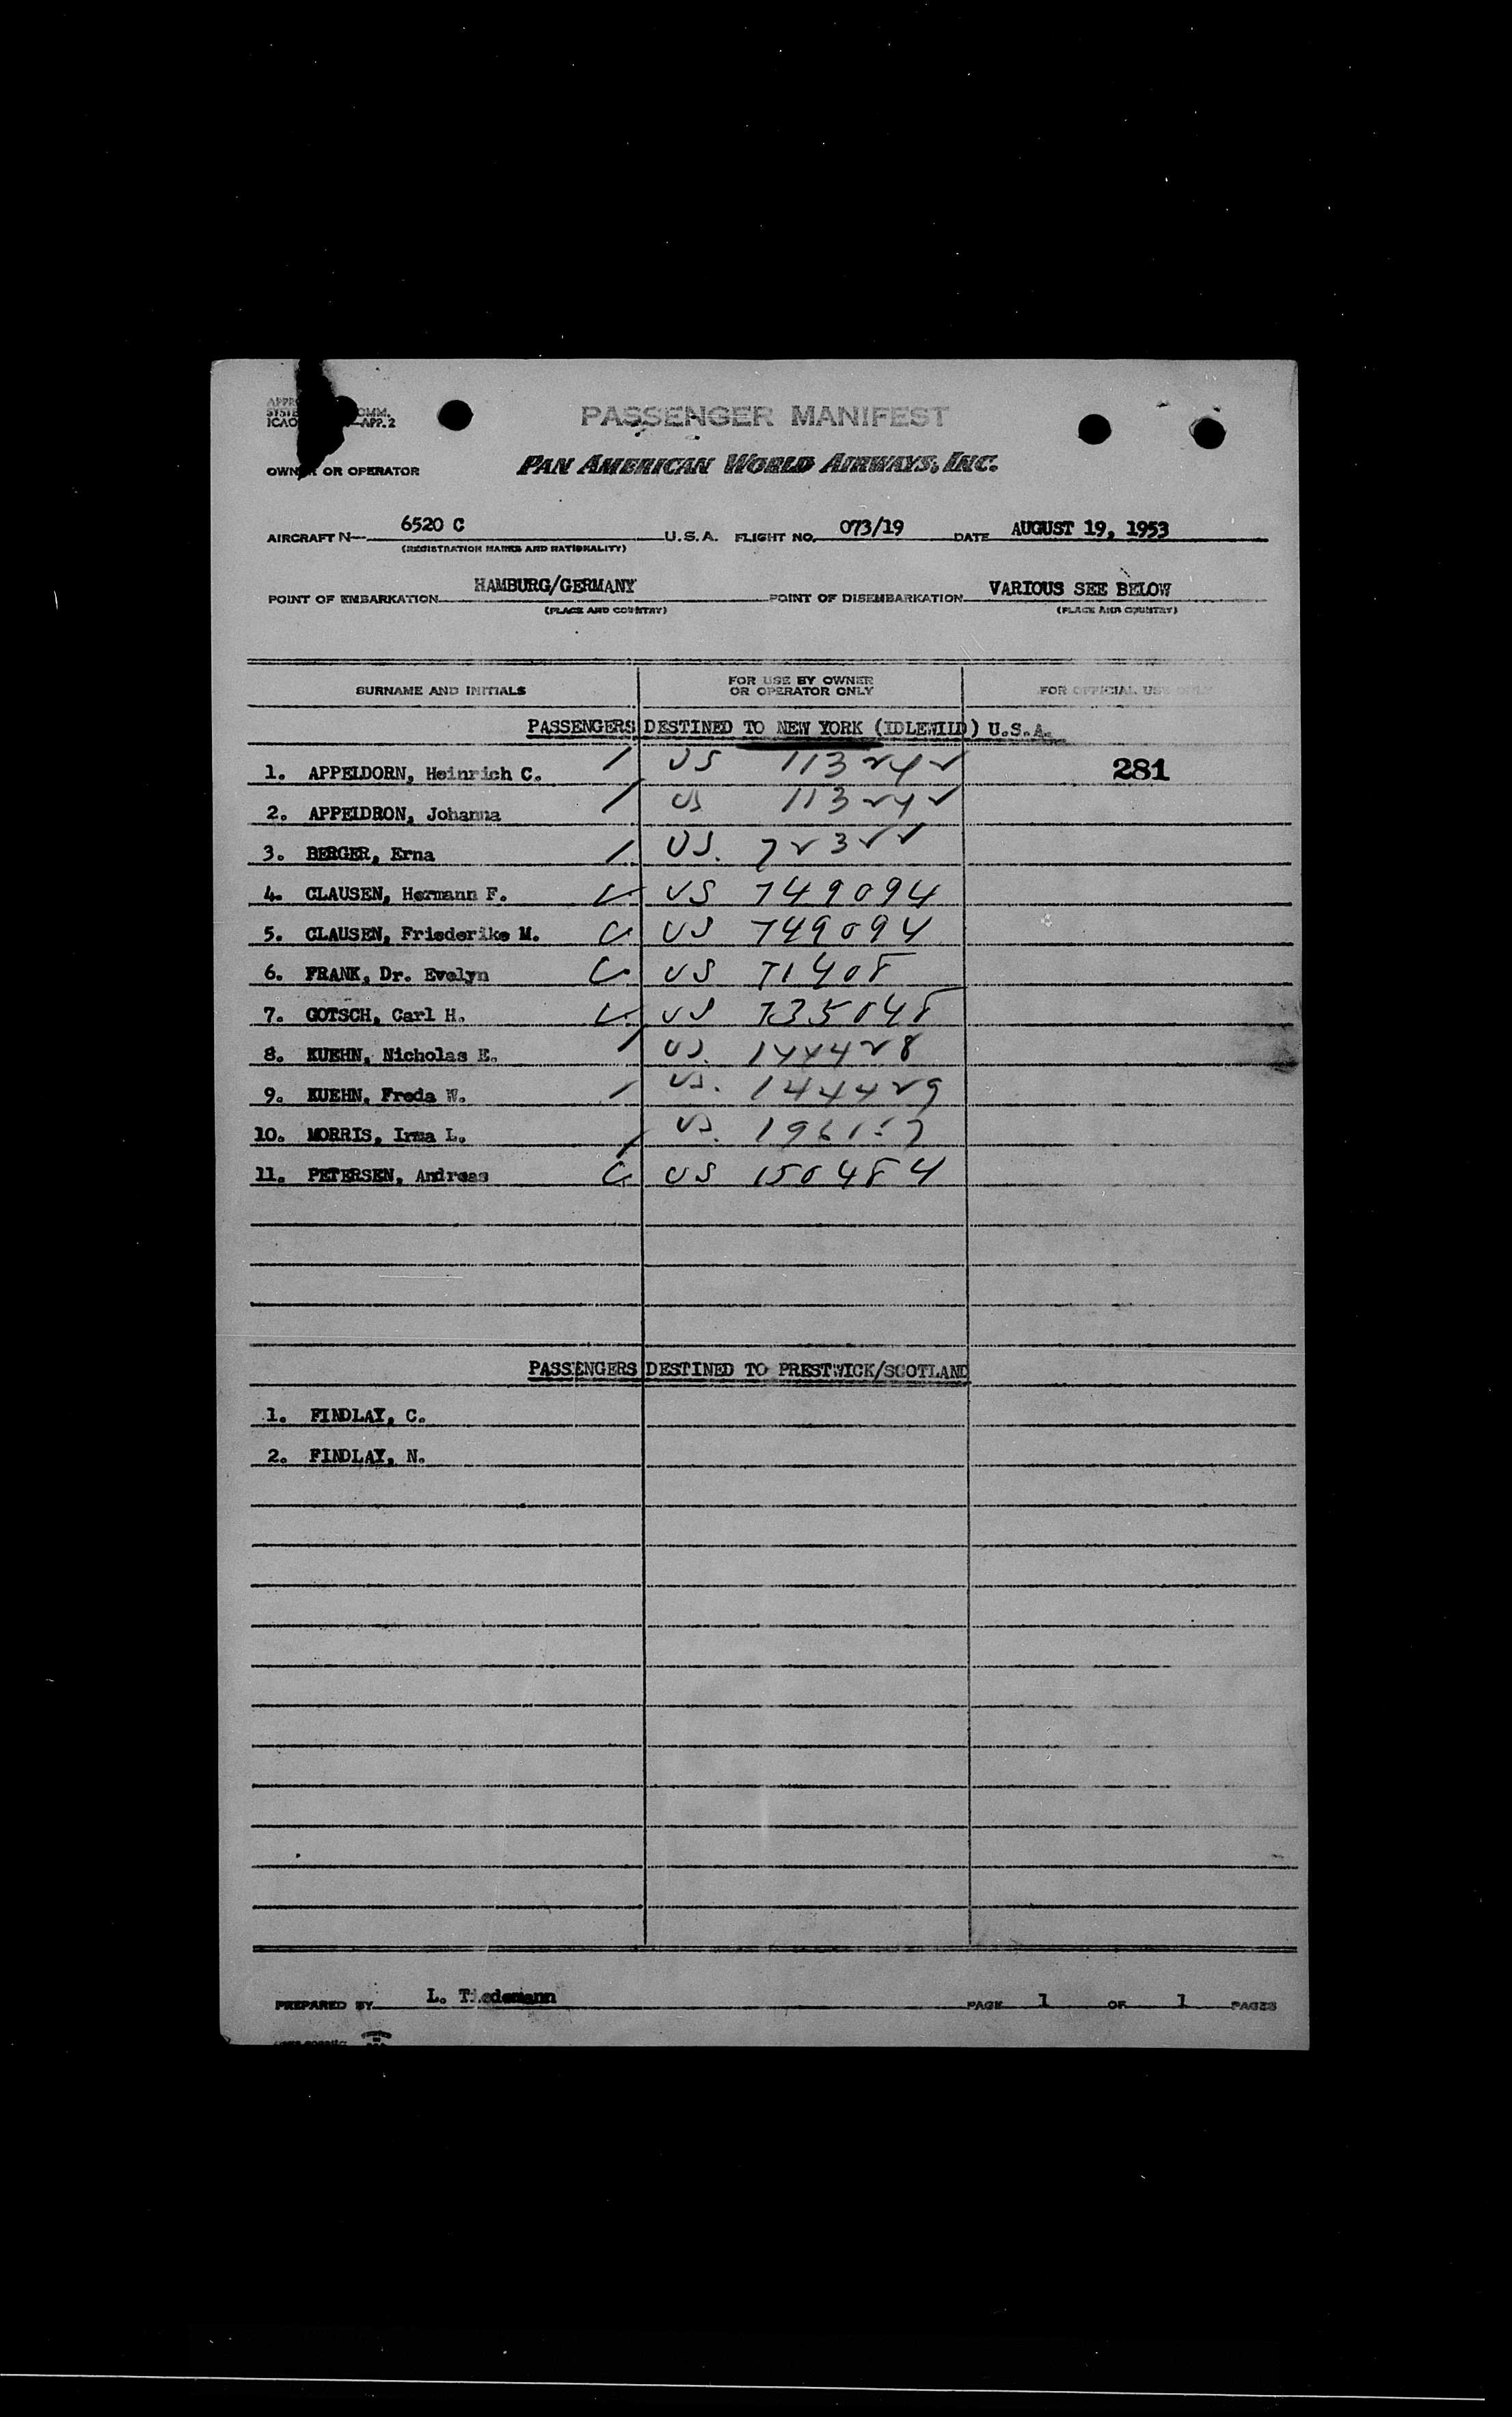 PASSENGER MANIFEST
OMM.
ICAO —APP. 2
OWNER OR OPERATOR PAN AMERICAN WORLD AIRWAYS, INC.
AIRCRAFT N— 6520 C U.S.A. FLIGHT NO. 073/19 DATE AUGUST 19, 1953
(REGISTRATION MARKS AND NATIONALITY)
POINT OF EMBARKATION HAMBURG/GERMANY POINT OF DISEMBARKATION VARIOUS SEE BELOW
(PLACE AND COUNTRY) (PLACE AND COUNTRY)
SURNAME AND INITIALS FOR USE BY OWNER OR OPERATOR ONLY FOR OFFICIAL USE ONLY
PASSENGERS DESTINED TO NEW YORK (IDLEWILD) U.S.A.
1. APPELDORN, Heinrich C. US 113242 281
2. APPELDRON, Johanna US 113242
3. BERGER, Erna US. 72322
4. CLAUSEN, Hermann F. US 749094
5. CLAUSEN, Friederike M. US 749094
6. FRANK, Dr. Evelyn US 71408
7. GOTSCH, Carl H. US 735048
8. KUEHN, Nicholas E. US. 144428
9. KUEHN, Freda W. US. 144429
10. MORRIS, Irma L. US.
11. PETERSEN, Andreas US 150484
PASSENGERS DESTINED TO PRESTWICK/SCOTLAND
1. FINDLAY, C.
2. FINDLAY, N.
PREPARED BY L. Tiedemann PAGE 1 OF 1 PAGES